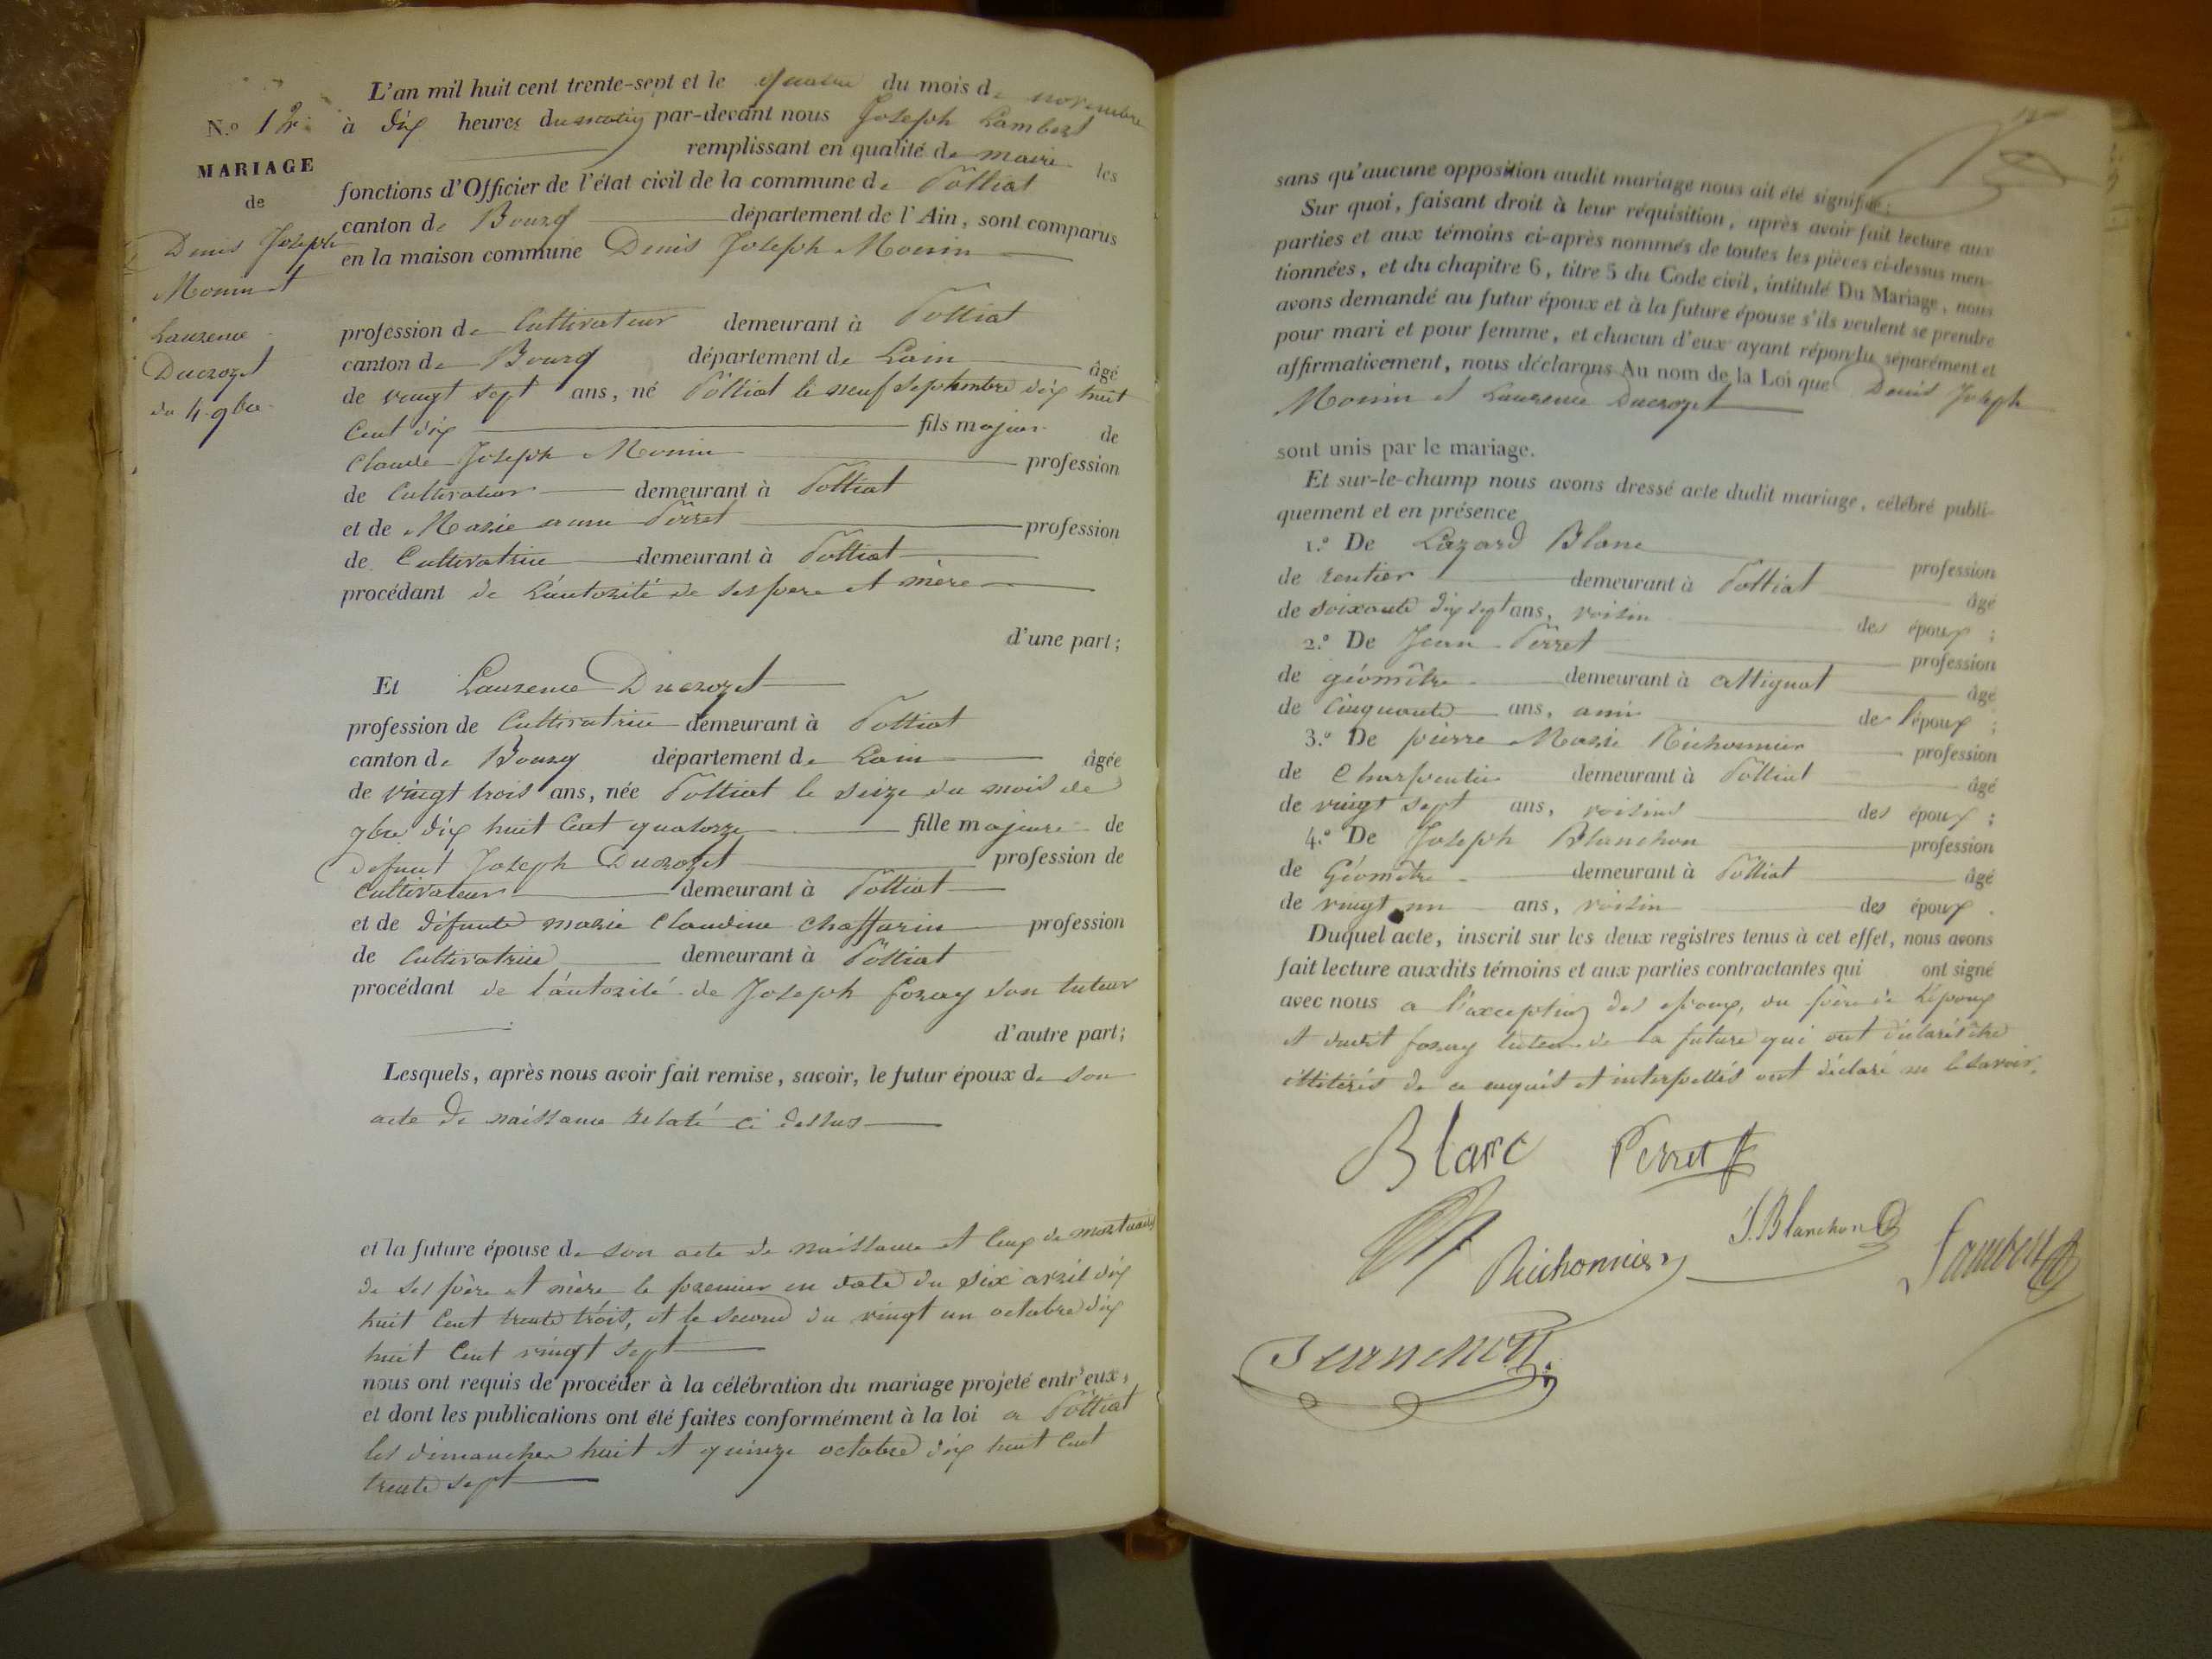 L'an mil huit cent trente-sept et le quatre du mois de novembre
N.o 12 à dix heures du matin par-devant nous Joseph Lambert
remplissant en qualité de maire les
MARIAGE
fonctions d'Officier de l'état civil de la commune de Polliat
de
canton de Bourg département de l'Ain, sont comparus
Denis Joseph
en la maison commune Denis Joseph Monin
Monin et
Laurence
Ducrozet
du 4 9bre
profession de Cultivateur demeurant à Polliat
canton de Bourg département de Lain âgé
de vingt sept ans, né Polliat le neuf septembre dix huit
Cent dix fils majeur de
Claude Joseph Monin profession
de Cultivateur demeurant à Polliat
et de Marie anne Perret profession
de Cultivatrice demeurant à Polliat
procédant de L'autorité de ses père et mère
d'une part;
Et Laurence Ducrozet
profession de Cultivatrice demeurant à Polliat
canton de Bourg département de Lain âgée
de vingt trois ans, née Polliat le seize du mois de
9bre dix huit Cent quatorze fille majeure de
defunt Joseph Ducrozet profession de
Cultivateur demeurant à Polliat
et de défunte marie Claudine Chaffarin profession
de Cultivatrice demeurant à Polliat
procédant de l'autorité de Joseph foray son tuteur
d'autre part;
Lesquels, après nous avoir fait remise, savoir, le futur époux de son
acte de naissance relaté ci dessus
et la future épouse de son acte de naissance et Ceux de mortuaires
de ses père et mère le premier en date du six avril dix
huit Cent trente trois, et le second du vingt un octobre dix
huit Cent vingt sept
nous ont requis de procéder à la célébration du mariage projeté entr'eux,
et dont les publications ont été faites conformément à la loi a Polliat
les dimanches huit et quinze octobre dix huit Cent
trente sept
sans qu'aucune opposition audit mariage nous ait été signifiée;
Sur quoi, faisant droit à leur réquisition, après avoir fait lecture aux
parties et aux témoins ci-après nommés de toutes les pièces ci-dessus men-
tionnées, et du chapitre 6, titre 5 du Code civil, intitulé Du Mariage, nous
avons demandé au futur époux et à la future épouse s'ils veulent se prendre
pour mari et pour femme, et chacun d'eux ayant répondu séparément et
affirmativement, nous déclarons Au nom de la Loi que Denis Joseph
Monin et Laurence Ducrozet
sont unis par le mariage.
Et sur-le-champ nous avons dressé acte dudit mariage, célébré publi-
quement et en présence
1.o De Lazard Blanc profession
de rentier demeurant à Polliat âgé
de soixante dix sept ans, voisin des époux;
2.o De Jean Perret profession
de géomètre demeurant à attignat âgé
de Cinquante ans, ami de l'époux;
3.o De pierre Marie Richonnier profession
de Charpentier demeurant à Polliat âgé
de vingt sept ans, voisins des époux;
4.o De Joseph Blanchon profession
de Géomètre demeurant à Polliat âgé
de vingt un ans, voisin des époux.
Duquel acte, inscrit sur les deux registres tenus à cet effet, nous avons
fait lecture auxdits témoins et aux parties contractantes qui ont signé
avec nous a l'exception des époux, du père de l'époux
et dudit foray tuteur de la future qui ont déclaré être
illitérés de ce enquis et interpellés ont déclaré ne le savoir.
Blanc Perret
Richonnier J. Blanchon Lambert